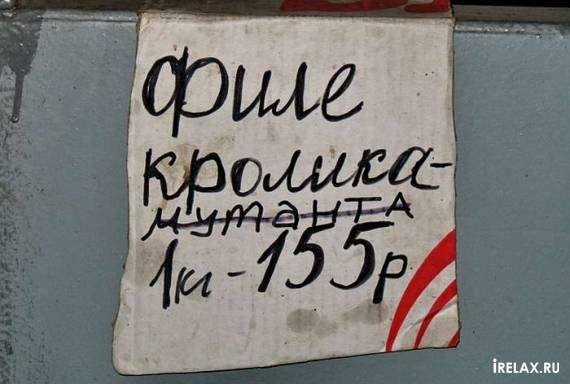 Филе
кролика-
мутанта
1кг-155р
iRELAX.RU